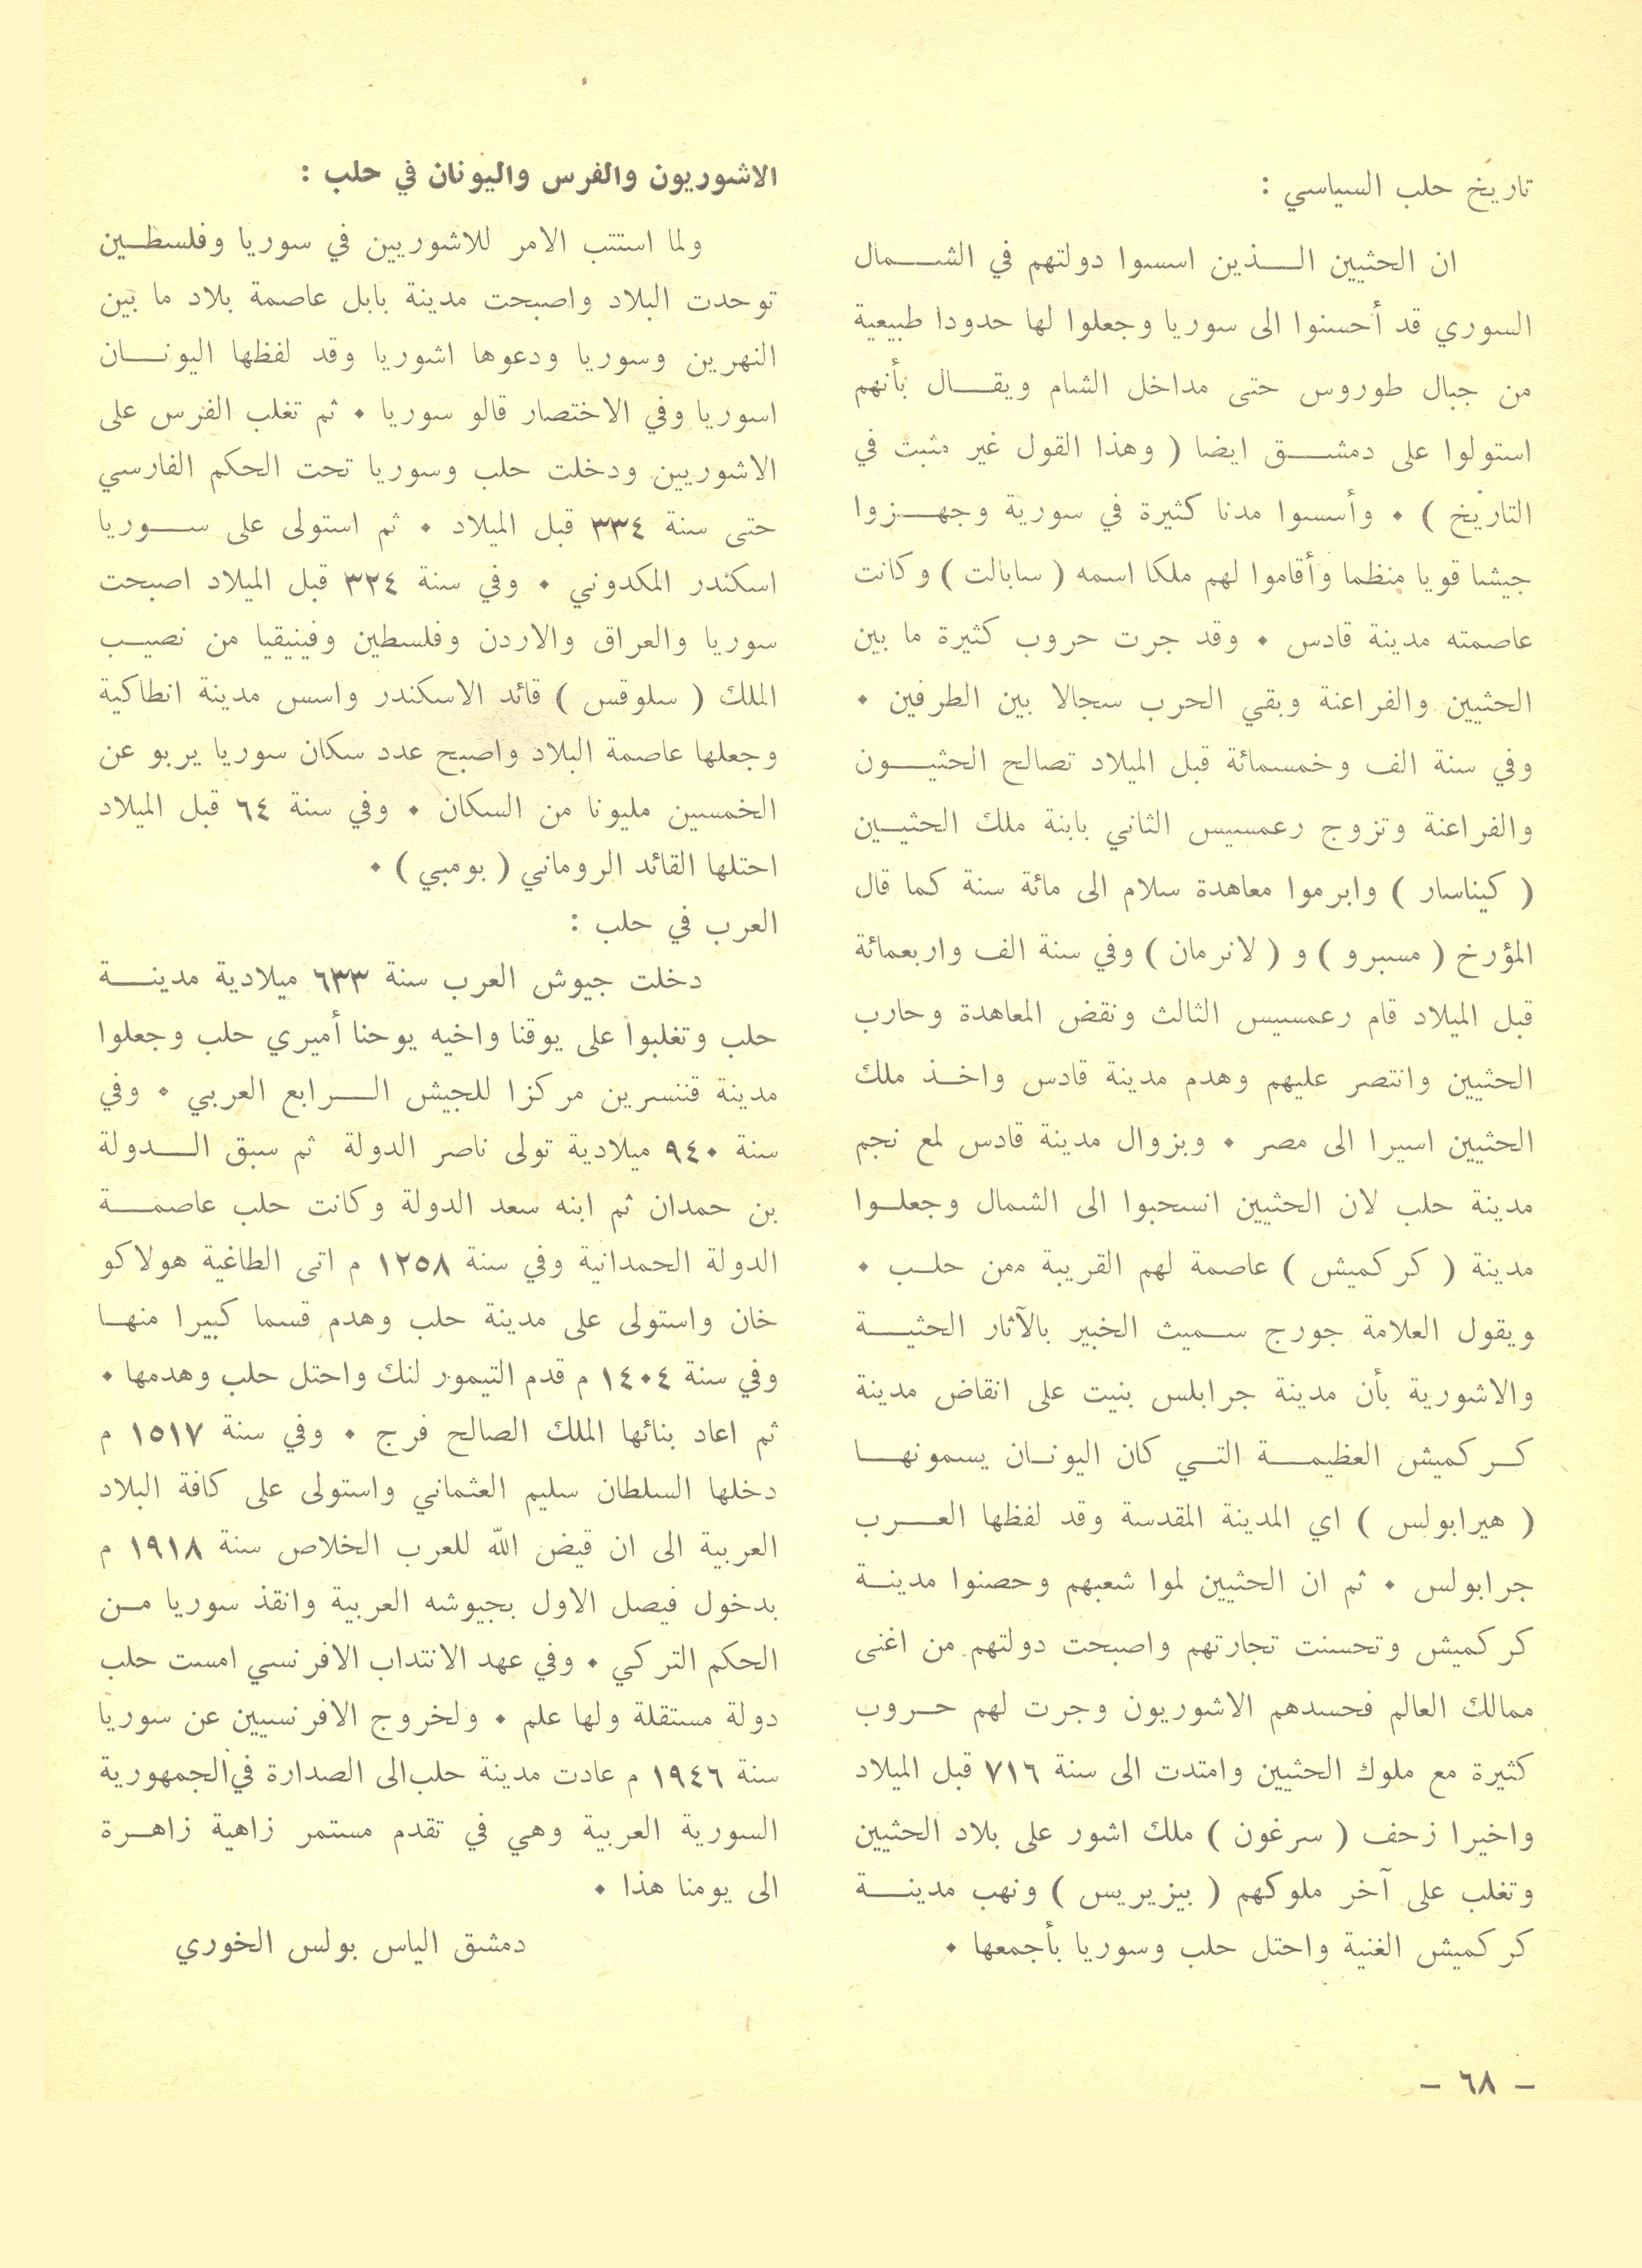 تاريخ حلب السياسي :
ان الحثيين الـذين اسسوا دولتهم في الشـمال
السوري قد أحسنوا الى سوريا وجعلوا لها حدودا طبيعية
من جبال طوروس حتى مداخل الشام ويقـال بأنهم
استولوا على دمشـق ايضا ( وهذا القول غير مثبت في
التاريخ ) ٠ وأسسوا مدنا كثيرة في سورية وجهـزوا
جيشا قويا منظما وأقاموا لهم ملكا اسمه ( سابالت ) وكانت
عاصمته مدينة قادس ٠ وقد جرت حروب كثيرة ما بين
الحثيين والفراعنة وبقي الحرب سجالا بين الطرفين ٠
وفي سنة الف وخمسمائة قبل الميلاد تصالح الحثيـون
والفراعنة وتزوج رعمسيس الثاني بابنة ملك الحثيـين
( كيناسار ) وابرموا معاهدة سلام الى مائة سنة كما قال
المؤرخ ( مسبرو ) و ( لانرمان ) وفي سنة الف واربعمائة
قبل الميلاد قام رعمسيس الثالث ونقض المعاهدة وحارب
الحثيين وانتصر عليهم وهدم مدينة قادس واخـذ ملك
الحثيين اسيرا الى مصر ٠ وبزوال مدينة قادس لمع نجم
مدينة حلب لان الحثيين انسحبوا الى الشمال وجعلـوا
مدينة ( كركميش ) عاصمة لهم القريبة ممن حلـب ٠
ويقول العلامة جورج سـميث الخبير بالآثار الحثيـة
والاشورية بأن مدينة جرابلس بنيت على انقاض مدينة
كـركميش العظيمـة التـي كان اليونـان يسمونهـا
( هيرابولس ) اي المدينة المقدسة وقد لفظها العـرب
جرابولس ٠ ثم ان الحثيين لموا شعبهم وحصنوا مدينـة
كركميش وتحسنت تجارتهم واصبحت دولتهم من اغنى
ممالك العالم فحسدهم الاشوريون وجرت لهم حـروب
كثيرة مع ملوك الحثيين وامتدت الى سنة ٧١٦ قبل الميلاد
واخيرا زحف ( سرغون ) ملك اشور على بلاد الحثيين
وتغلب على آخر ملوكهم ( بيزيريس ) ونهب مدينـة
كركميش الغنية واحتل حلب وسوريا بأجمعها ٠
الاشوريون والفرس واليونان في حلب :
ولما استتب الامر للاشوريين في سوريا وفلسطـين
توحدت البلاد واصبحت مدينة بابل عاصمة بلاد ما بين
النهرين وسوريا ودعوها اشوريا وقد لفظها اليونـان
اسوريا وفي الاختصار قالو سوريا ٠ ثم تغلب الفرس على
الاشوريين ودخلت حلب وسوريا تحت الحكم الفارسي
حتى سنة ٣٣٤ قبل الميلاد ٠ ثم استولى على سـوريا
اسكندر المكدوني ٠ وفي سنة ٣٢٤ قبل الميلاد اصبحت
سوريا والعراق والاردن وفلسطين وفينيقيا من نصيـب
الملك ( سلوقس ) قائد الاسكندر واسس مدينة انطاكية
وجعلها عاصمة البلاد واصبح عدد سكان سوريا يربو عن
الخمسين مليونا من السكان ٠ وفي سنة ٦٤ قبل الميلاد
احتلها القائد الروماني ( بومبي ) ٠
العرب في حلب :
دخلت جيوش العرب سنة ٦٣٣ ميلادية مدينـة
حلب وتغلبوا على يوقنا واخيه يوحنا أميري حلب وجعلوا
مدينة قنسرين مركزا للجيش الـرابع العربي ٠ وفي
سنة ٩٤٠ ميلادية تولى ناصر الدولة ثم سبق الـدولة
بن حمدان ثم ابنه سعد الدولة وكانت حلب عاصمـة
الدولة الحمدانية وفي سنة ١٢٥٨ م اتى الطاغية هولاكو
خان واستولى على مدينة حلب وهدم قسما كبيرا منهـا
وفي سنة ١٤٠٤ م قدم التيمور لنك واحتل حلب وهدمها ٠
ثم اعاد بنائها الملك الصالح فرج ٠ وفي سنة ١٥١٧ م
دخلها السلطان سليم العثماني واستولى على كافة البلاد
العربية الى ان قيض الله للعرب الخلاص سنة ١٩١٨ م
بدخول فيصل الاول بجيوشه العربية وانقذ سوريا مـن
الحكم التركي ٠ وفي عهد الانتداب الافرنسي امست حلب
دولة مستقلة ولها علم ٠ ولخروج الافرنسيين عن سوريا
سنة ١٩٤٦ م عادت مدينة حلب الى الصدارة في الجمهورية
السورية العربية وهي في تقدم مستمر زاهية زاهـرة
الى يومنا هذا ٠
دمشق الياس بولس الخوري
- ٦٨ -